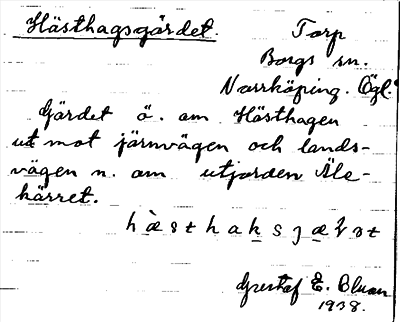 Hästhagsgärdet. Torp
Borgs sn.
Norrköping. Ögl.
Gärdet ö. om Hästhagen
ut mot järnvägen och lands-
vägen n. om utjorden Åle-
kärret.
Gustaf E. Bluan
1938.